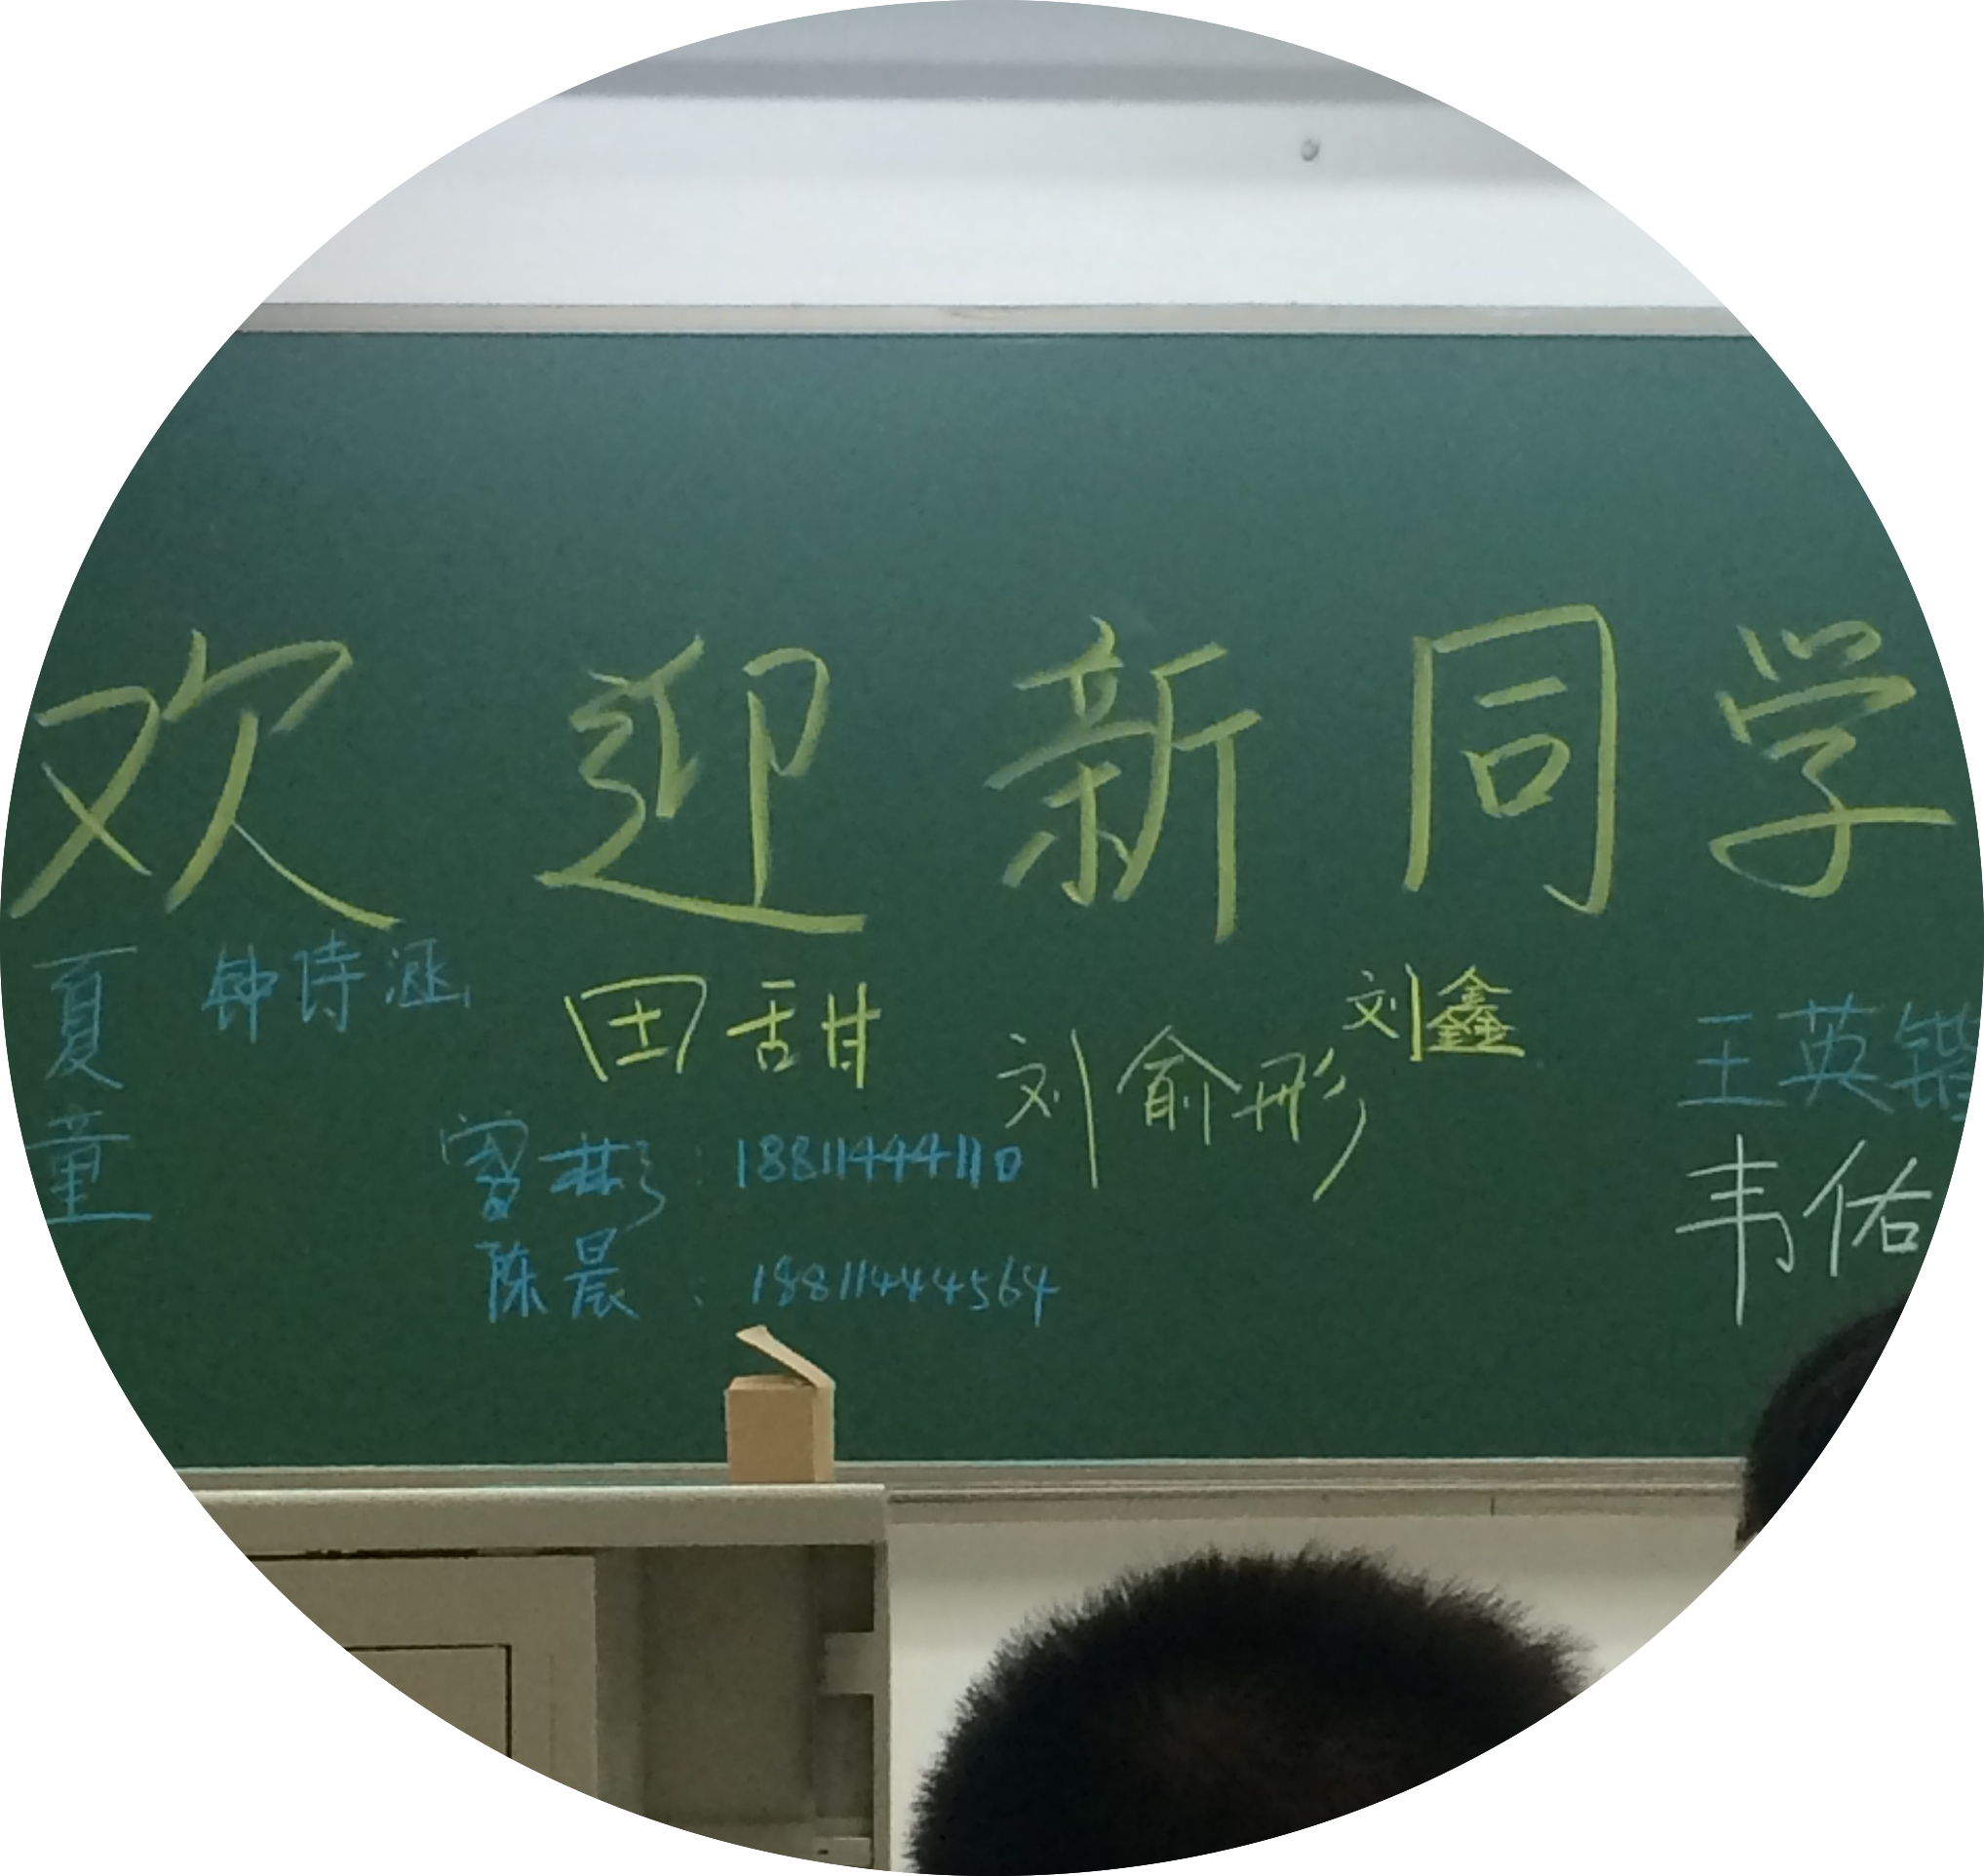 欢迎新同学
夏童
钟诗涵
田甜
刘俞彤
刘鑫
王英锴
韦佑
雷彬：18811444110
陈晨：18811444564